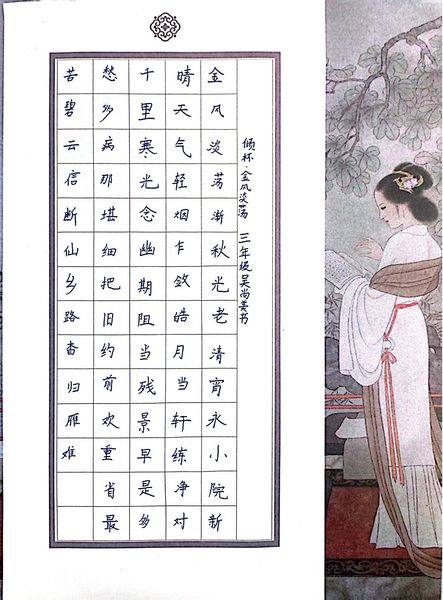 倾杯·金风淡荡 三年级吴尚美书
金风淡荡渐秋光老清宵永小院新
晴天气轻烟乍敛皓月当轩练净对
千里寒光念幽期阻当残景早是多
愁多病那堪细把旧约前欢重省最
苦碧云信断仙乡路杳归雁难